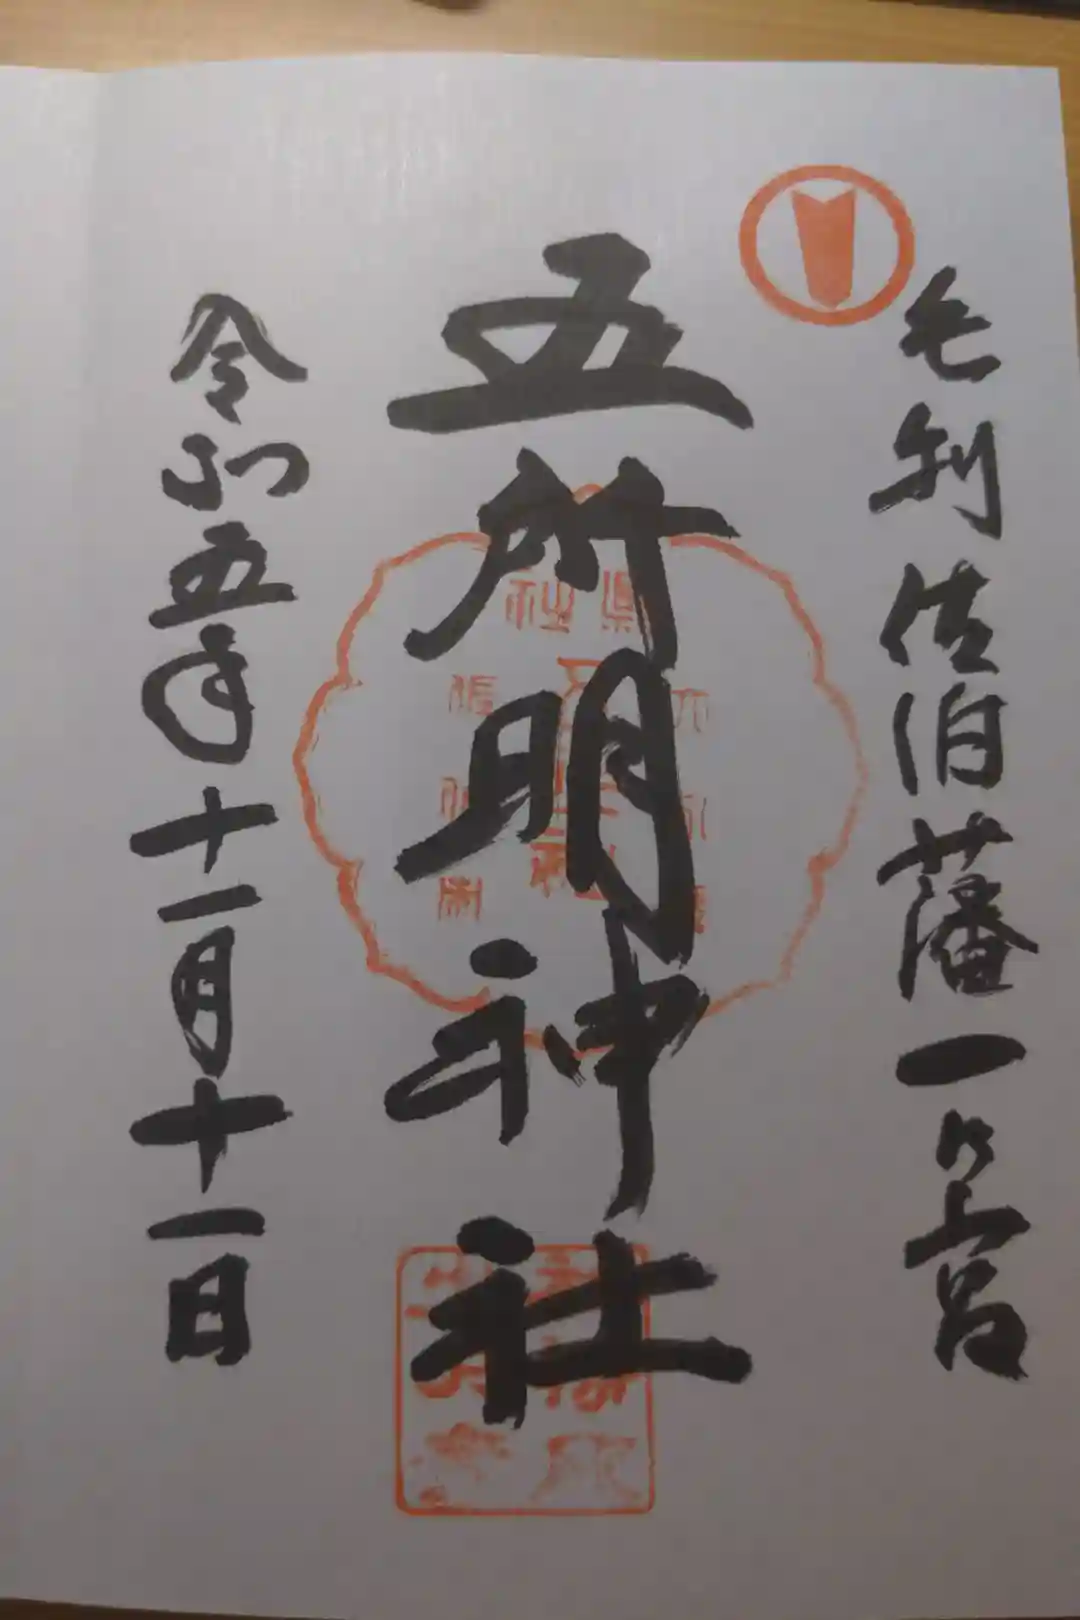 毛利佐伯藩一の宮
五所明神社
令和五年十一月十一日
県社